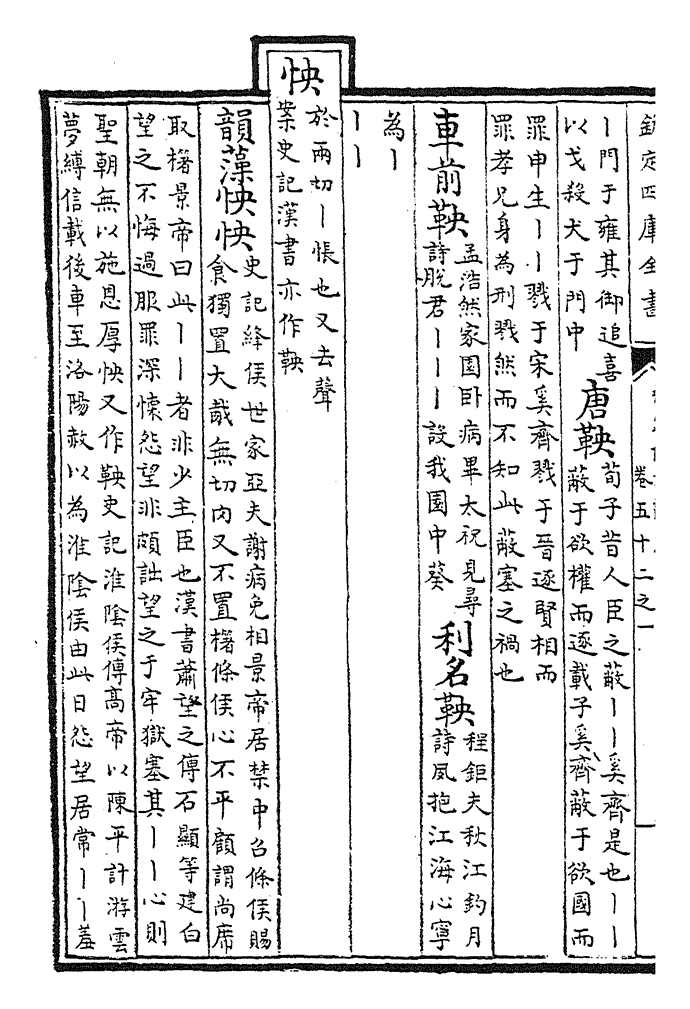 欽定四庫全書
卷五十二之一
丨門于雍其御追喜
以戈殺犬于門中
唐鞅
荀子昔人臣之蔽丨丨奚齊是也丨丨
蔽于欲權而逐載子奚齊蔽于欲國而
罪申生丨丨戮于宋奚齊戮于晉逐賢相而
罪孝兄身為刑戮然而不知此蔽塞之禍也
車前鞅
孟浩然家園卧病畢太祝見尋
詩脫君丨丨丨設我園中葵
利名鞅
程鉅夫秋江釣月
詩夙抱江海心寧
為丨
丨丨
怏
於兩切丨悵也又去聲
案史記漢書亦作鞅
韻藻怏怏
史記絳侯世家亞夫謝病免相景帝居禁中召條侯賜
食獨置大胾無切肉又不置櫡條侯心不平顧謂尚席
取櫡景帝曰此丨丨者非少主臣也漢書蕭望之傳石顯等建白
望之不悔過服罪深懷怨望非頗詘望之于牢獄塞其丨丨心則
聖朝無以施恩厚怏又作鞅史記淮陰侯傳高帝以陳平計游雲
夢縛信載後車至洛陽赦以為淮陰侯由此日怨望居常丨丨羞